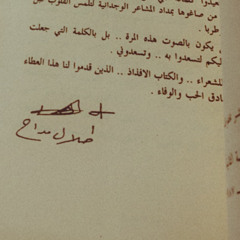 من صاغوها بمداد المشاعر الوجدانية لتلمس القلوب
طربا .
يكون بالصوت هذه المرة .. بل بالكلمة التي جعلت
ليكم لتسعدوا به .. وتسعدوني .
لشعراء .. والكتاب الافذاذ .. الذين قدموا لنا هذا العطاء
ادق الحب والوفاء .
طلال مداح